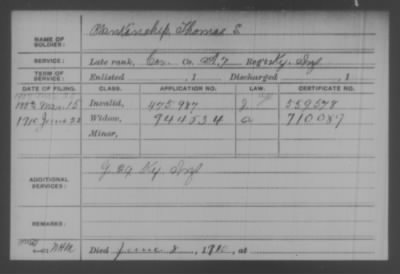 Blankinship, Thomas S
NAME OF SOLDIER:
SERVICE: Late rank, Cor. Co. A. 7 Reg't Ky. Inf
TERM OF SERVICE: Enlisted , 1 Discharged , 1
DATE OF FILING. CLASS. APPLICATION NO. LAW. CERTIFICATE NO.
Mar. 15 Invalid, 475,987 J 559578
1910 June 22 Widow, 944534 a 710087
Minor,
ADDITIONAL SERVICES: G 29 Ky Inf
REMARKS:
Died June 8, 1910, at